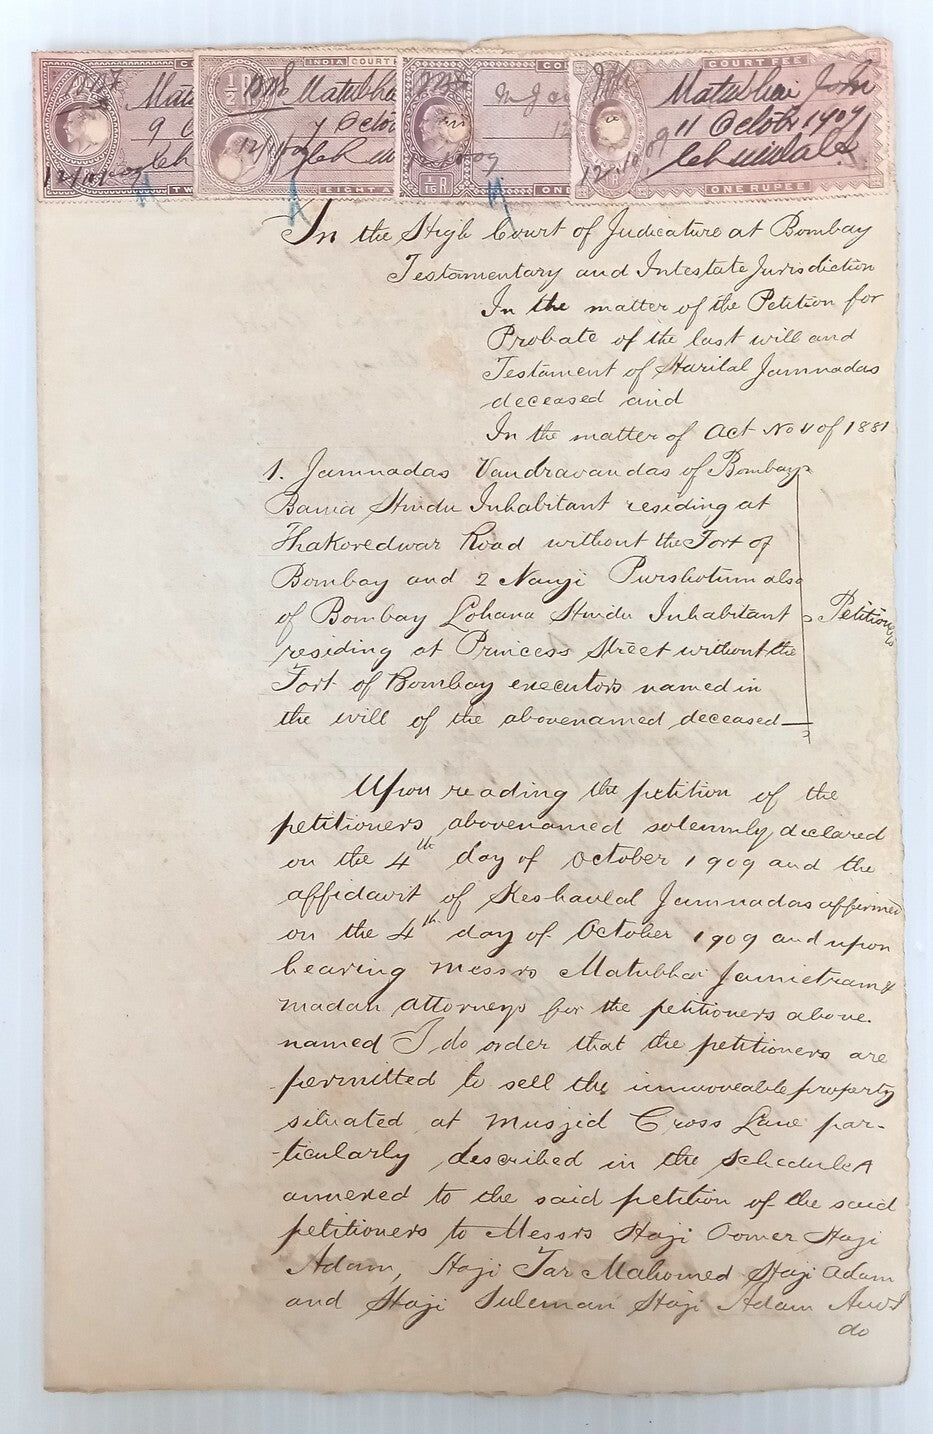 INDIA COURT
COURT FEE
½ R
Matubhai
Matubhai
9
7 Octob
11 October 1909
12/10/09
12.10.09
EIGHT A
1/16 R
ONE
ONE RUPEE
In the High Court of Judicature at Bombay
Testamentary and Intestate Jurisdiction
In the matter of the Petition for
Probate of the last will and
Testament of Harilal Jamnadas
deceased and
In the matter of Act No V of 1881
1. Jamnadas Vandravandas of Bombay
Bania Hindu Inhabitant residing at
Thakoredwar Road without the Fort of
Bombay and 2 Nanji Purshotum also
of Bombay Lohana Hindu Inhabitant
Petitioners
residing at Princess Street without the
Fort of Bombay executors named in
the will of the abovenamed deceased
Upon reading the petition of the
petitioners abovenamed solemnly declared
on the 4th day of October 1909 and the
affidavit of Keshavlal Jamnadas affirmed
on the 4th day of October 1909 and upon
hearing Messrs Matubhai Jamietram &
Madan attorneys for the petitioners above
named I do order that the petitioners are
permitted to sell the immoveable property
situated at Musjid Cross Lane par-
-ticularly described in the schedule A
annexed to the said petition of the said
petitioners to Messrs Haji Oomer Haji
Adam, Haji Tar Mahomed Haji Adam
and Haji Suleman Haji Adam And I
do